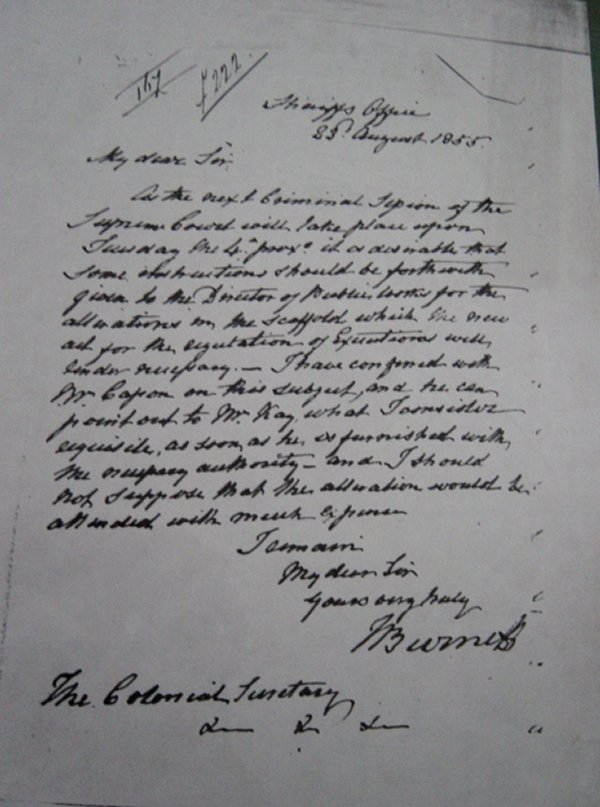 167 f 222
Sheriff's Office
25th August 1855
My dear Sir
As the next Criminal Session of the
Supreme Court will take place upon
Tuesday the 4th proxo it is desirable that
some instructions should be forthwith
given to the Director of Public Works for the
alterations in the scaffold which the new
act for the regulation of Executions will
render necessary. — I have conferred with
Mr Capon on this subject, and he can
point out to Mr Kay what I consider
requisite, as soon as he is furnished with
the necessary authority — and I should
not suppose that the alteration would be
attended with much Expense
I remain
My dear Sir
Yours very truly
J Burnett
The Colonial Secretary